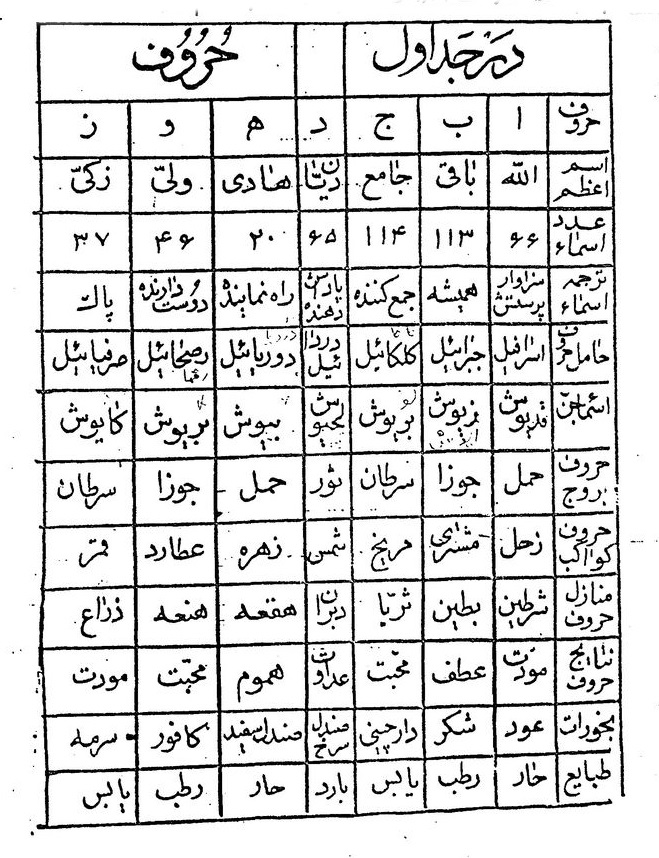 در جداول حروف
حروف ا ب ج د ه و ز
اسم اعظم الله باقی جامع دیّان هادی ولیّ زکیّ
عدد اسماء ۶۶ ۱۱۳ ۱۱۴ ۶۵ ۲۰ ۴۶ ۳۷
ترجمه اسماء سزاوار پرستش همیشه جمع کننده پاداش دهنده راه نماینده دوست دارنده پاک
حامل حروف اسرافیل جبرائیل کلکائیل دردائیل دوریائیل رصحائیل صرفیائیل
اسماء جن قدیوش نریوش لحیوش بیوش بریوش کایوش
حروف بروج حمل جوزا سرطان ثور حمل جوزا سرطان
حروف کواکب زحل مشتری مریخ شمس زهره عطارد قمر
منازل حروف شرطین بطین ثریّا دبران هقعه هنعه ذراع
نتایج حروف مودّت عطف محبت عداوت هموم محبّت مودت
بخورات عود شکر دارچینی صندل سرخ صندل سفید کافور سرمه
طبایع حار رطب یابس بارد حار رطب یابس